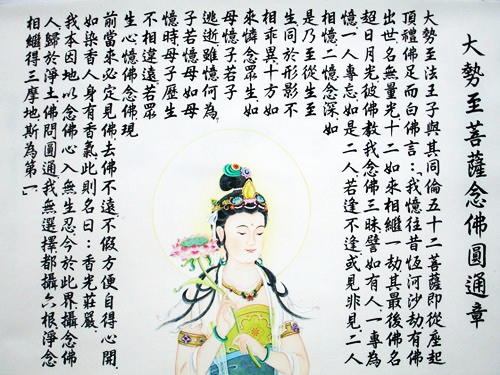 大勢至菩薩念佛圓通章
大勢至法王子與其同倫五十二菩薩即從座起
頂禮佛足而白佛言：我憶往昔恆河沙劫有佛
出世名無量光十二如來相繼一劫其最後佛名
超日月光彼佛教我念佛三昧譬如有人、一專為
憶、一人專忘如是二人若逢不逢或見非見、二人
相憶二憶念深如
是乃至從生至
生同於形影不
相乖異十方如
來憐念眾生如
母憶子若子
逃逝、雖憶何為、
子若憶母如母
憶時、母子歷生
不相違遠若眾
生心憶佛念佛現
前當來必定見佛去佛不遠、不假方便自得心開、
如染香人身有香氣、此則名曰：香光莊嚴、
我本因地以念佛心入無生忍今於此界、攝念佛
人歸於淨土佛問圓通我無選擇都攝六根淨念
相繼得三摩地斯為第一、